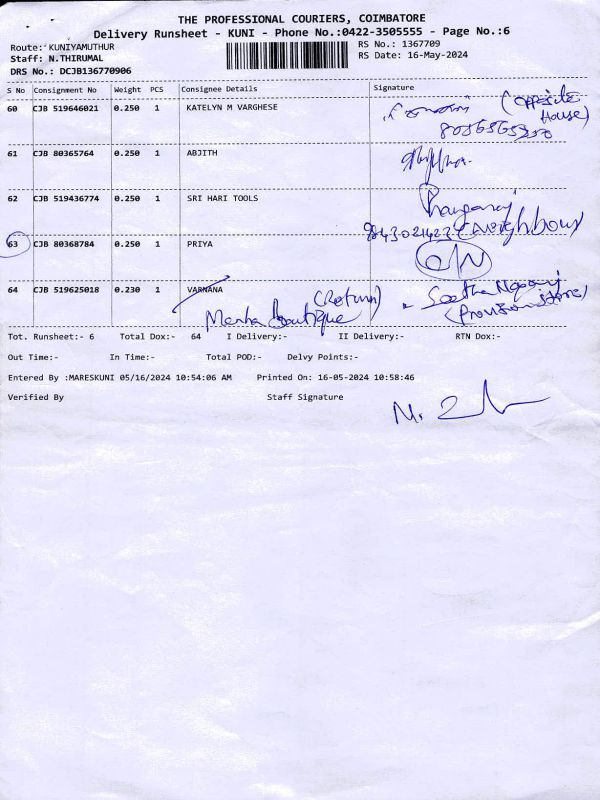 THE PROFESSIONAL COURIERS, COIMBATORE
Delivery Runsheet - KUNI - Phone No.:0422-3505555 - Page No.:6
Route: KUNIYAMUTHUR
RS No.: 1367709
Staff: N.THIRUMAL
RS Date: 16-May-2024
DRS No.: DCJB136770906
S No Consignment No Weight PCS Consignee Details Signature
60 CJB 519646021 0.250 1 KATELYN M VARGHESE
(Opposite House)
61 CJB 80365764 0.250 1 ABJITH
62 CJB 519436774 0.250 1 SRI HARI TOOLS
9843021423 (Neighbour)
63 CJB 80368784 0.250 1 PRIYA
64 CJB 519625018 0.230 1 VARNANA
(Return)
Boutique
(Provision Store)
Tot. Runsheet:- 6 Total Dox:- 64 I Delivery:- II Delivery:- RTN Dox:-
Out Time:- In Time:- Total POD:- Delvy Points:-
Entered By :MARESKUNI 05/16/2024 10:54:06 AM Printed On: 16-05-2024 10:58:46
Verified By Staff Signature